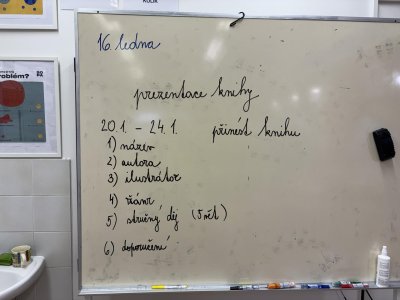 KULIK
roblém?
16. ledna
prezentace knihy
20.1. – 24.1. přinést knihu
1) název
2) autora
3) ilustrátor
4) žánr
5) stručný děj (5 vět)
6) doporučení